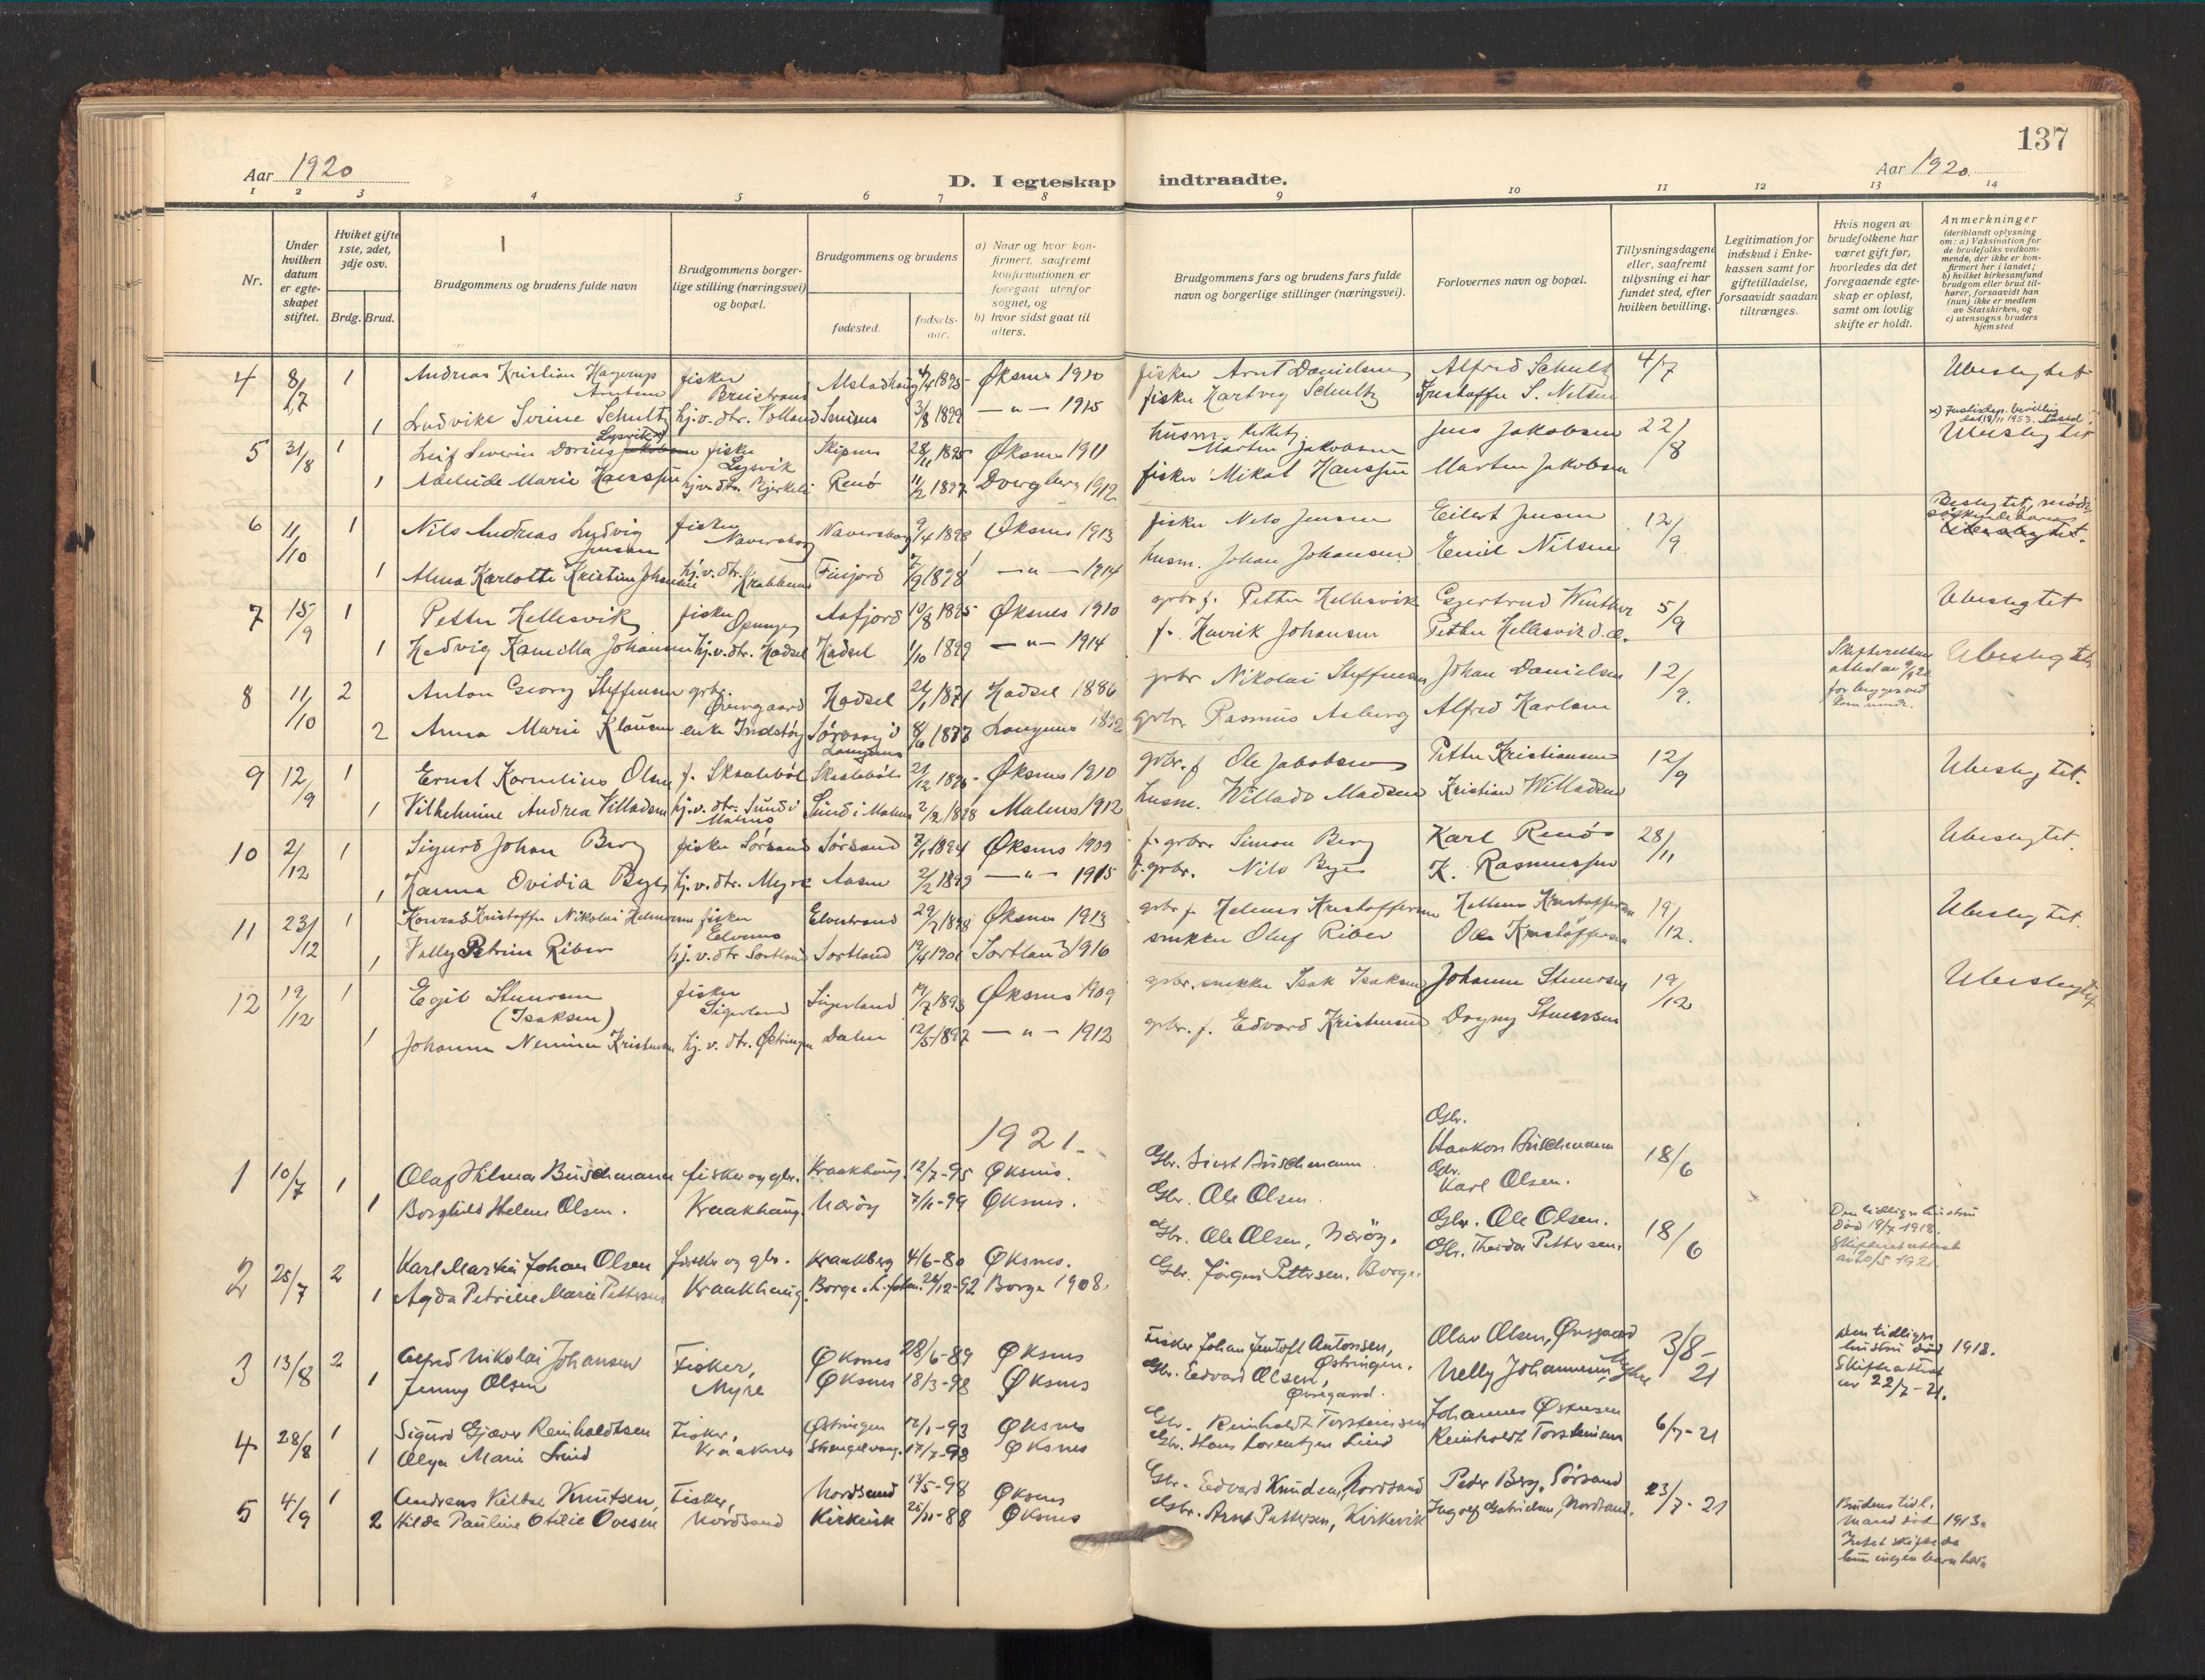 137
Aar 1920
D. I egteskap indtraadte.
Aar 1920.
1 2 3 4 5 6 7 8 9 10 11 12 13 14
Nr.
Under hvilken datum er egteskapet stiftet.
Hvilket gifte 1ste, 2det, 3dje osv.
Brdg. Brud.
Brudgommens og brudens fulde navn
Brudgommens borgerlige stilling (næringsvei) og bopæl.
Brudgommens og brudens
fødested.
fødselsaar.
a) Naar og hvor konfirmert, saafremt konfirmationen er foregaat utenfor sognet, og
b) hvor sidst gaat til alters.
Brudgommens fars og brudens fars fulde navn og borgerlige stillinger (næringsvei).
Forlovernes navn og bopæl.
Tillysningsdagene eller, saafremt tillysning ei har fundet sted, efter hvilken bevilling.
Legitimation for indskud i Enkekassen samt for giftetilladelse, forsaavidt saadan tiltrænges.
Hvis nogen av brudefolkene har været gift før, hvorledes da det foregaaende egteskap er opløst, samt om lovlig skifte er holdt.
Anmerkninger
(deriblandt oplysning om: a) Vaksination for de brudefolks vedkommende, der ikke er konfirmert her i landet;
b) hvilket kirkesamfund brudgom eller brud tilhører, forsaavidt han (hun) ikke er medlem av Statskirken, og
c) utensogns bruders hjemsted
4 8/7 1 Andreas Kristian Hagerup Arntsen fisker Alstadhaug 1895 Øksnes 1910 fisker Arnt Danielsen Alfred Schultz 4/7 Ubeslegtet
1 Ludvike Serine Schultz hj.v. dtr. 3/8 1899 — " — 1915 fisker Hartvig Schultz Kristoffer S. Nilsen
5 31/8 1 Leif Severin Dorius Lysvik fisker Lysvik Skipnes 28/11 1895 Øksnes 1911 husm. Martin Jakobsen Jens Jakobsen 22/8 Ubeslegtet
1 Adeleide Marie Hanssen hj.v. dtr. Bjerkeli Renø 11/2 1897 Dvergberg 1912 fisker Mikal Hanssen Martin Jakobsen
6 11/10 1 Nils Andreas Ludvig Jensen fisker Naversborg Naversborg 9/4 1898 Øksnes 1913 fisker Nils Jensen Eilert Jensen 12/9 Beslegtet,
1 Alma Karlotte Kristine Johansen hj.v. dtr. Finjord 1898 — " — 1914 husm. Johan Johansen Emil Nilsen
7 15/9 1 Petter Hellesvik fisker Aafjord 10/8 1895 Øksnes 1910 grbr. f. Petter Hellesvik Gjertrud Winther 5/9 Ubeslegtet
1 Hedvig Kamilla Johansen hj.v. dtr. Hadsel Hadsel 1/10 1899 — " — 1914 f. Henrik Johansen Petter Hellesvik d.æ.
8 11/10 2 Anton Georg Steffensen grbr. Øvregaard Hadsel 1871 Hadsel 1886 grbr Nikolai Steffensen Johan Danielsen 12/9. Ubeslegtet
2 Anna Marie Klausen enke 8/6 1877 Langenes 1892 grbr. Rasmus Aaberg Alfred Karlsen
9 12/9 1 Ernst Kornelius Olsen f. Skaalebøl Skaalebøl 21/12 1896 Øksnes 1910 grbr. f Ole Jakobsen Petter Kristiansen 12/9 Ubeslegtet.
1 Vilhelmine Andrea Villadsen hj.v. dtr. Sund i Malnes Sund i Malnes 2/2 1898 Malnes 1912 husm. Willads Madsen Kristian Willadsen
10 2/12 1 Sigurd Johan Berg fisker Sørsand Sørsand 2/1 1894 Øksnes 1909 f. grbr. Simon Berg Karl Renø 28/11 Ubeslegtet.
1 Hanna Ovidia Bye hj.v. dtr. Myre Aasen 2/2 1899 — " — 1915 f. grbr. Nils Bye K. Rasmussen
11 23/12 1 Konrad Kristoffer Nikolai Helmersen fisker Elvenes Elvestrand 29/7 1898 Øksnes 1913 grbr f. Helmer Kristoffersen Helmer Kristoffersen 19/12. Ubeslegtet.
1 Vally Petrine Riber hj.v. dtr Sortland Sortland 19/4 1901 Sortland 1916 snekker Oluf Riber Ole Kristoffersen
12 19/12 1 Egil Stuursen (Isaksen) fisker Sigerland Sigerland 1893 Øksnes 1909 grbr. snekker Isak Isaksen Johanne Stuersen 19/12 Ubeslegtet
1 Johanne Nennine Kristensen hj.v. dtr. Østringen Dalen 12/5 1892 — " — 1912 grbr. f. Edvard Kristensen Dagny Stuersen
1921.
1 10/7 1 Olaf Hilmar Buschmann fisker og gbr. Kraakhaug 12/7-95 Øksnes. Gbr. Sivert Buschmann Gbr. Haakon Buschmann 18/6
1 Borghild Helene Olsen. Kraakhaug. Nærøy 7/11-99 Øksnes. Gbr. Ole Olsen. Gbr. Karl Olsen.
2 25/7 2 Karl Martin Johan Olsen fisker og gbr. Kraakberg 4/6-80 Øksnes. Gbr. Ole Olsen, Nærøy. Gbr. Ole Olsen. 18/6 Den tidligere hustru død 19/7-1918. Skifteretsattest av 20/5 1921.
1 Agda Petrine Marie Pettersen Kraakhaug. Borge i Lofoten. 26/12-92 Borge 1908. Gbr. Jørgen Pettersen. Borge. Gbr. Theodor Pettersen.
3 13/8 2 Alfred Nikolai Johansen Fisker, Øksnes 28/6-89 Øksnes Fisker Johan Jentoft Antonsen, Østringen. Olav Olsen, Øvregaard 3/8-21 Den tidligere hustru død 1918. Skifteattest av 22/7-21.
1 Jenny Olsen Myre Øksnes 18/3-98 Øksnes Gbr. Edvard Olsen, Øvregaard. Nelly Johannesen, Myre
4 28/8 1 Sigurd Gjæver Reinholdtsen Fisker, Østringen 12/1-93 Øksnes Gbr. Reinholdt Torsteinsen Johannes Østensen 6/7-21
1 Olga Marie Lind Kraaknes Strengelvaag. 17/7-98 Øksnes Gbr. Hans Lorentzen Lind Reinholdt Torsteinsen
5 4/9 1 Andreas Kildal Knutsen, Fisker, Nordsand 13/5-98 Øksnes Gbr. Edvard Knudsen, Nordsand Peder Berg, Sørsand 23/7-21
2 Hilda Pauline Otilie Ovesen Nordsand Kirkevik 25/11-88 Øksnes Gbr. Arnt Pettersen, Kirkevik Ingolf Gabrielsen, Nordsand. Brudens tidl. mand død 1913. Intet skifte da hun ingen barn har.